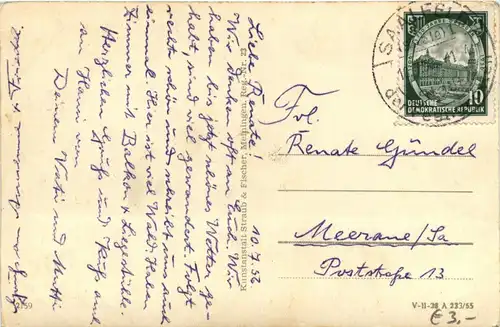 10.7.56
Liebe Renate!
Wir denken oft an Euch. Wir
haben bis jetzt schönes Wetter ge-
habt und viel gewandert. Folgt
recht schön und schreibt uns auch
einmal. Hier ist viel Wald. Haben
Zimmer mit Balkon & Liegestühle.
Herzlichen Gruß und Kuß auch
an Hanni von
Deinen Vati und Mutti
Kunstanstalt Straub & Fischer, Meiningen, Reg.-Nr. 23
2159
SAALFELD
DEUTSCHE
DEMOKRATISCHE REPUBLIK
10
Frl.
Renate Gündel
Meerane/Sa
Poststraße 13
V-11-28 A 233/55
€ 3,-